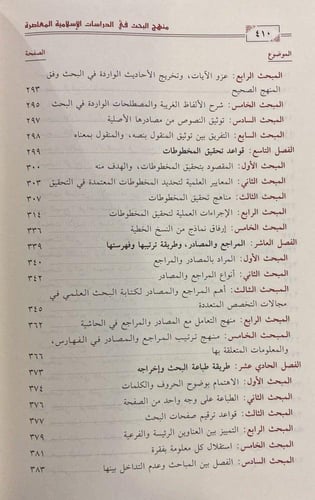 ٤١٠
منهج البحث في الدراسات الإسلامية المعاصرة
الموضوع
الصفحة
المبحث الرابع: عزو الآيات، وتخريج الأحاديث الواردة في البحث وفق
المنهج الصحيح ٢٩٣
المبحث الخامس: شرح الألفاظ الغريبة والمصطلحات الواردة في البحث ٢٩٥
المبحث السادس: توثيق النصوص من مصادرها الأصلية ٢٩٧
المبحث السابع: التفريق بين توثيق المنقول بنصه، والمنقول بمعناه ٢٩٨
الفصل التاسع: قواعد تحقيق المخطوطات ٢٩٩
المبحث الأول: المقصود بتحقيق المخطوطات، والهدف منه ٣٠٠
المبحث الثاني: المعايير العلمية لتحديد المخطوطات المعتمدة في التحقيق ٣٠٣
المبحث الثالث: مناهج تحقيق المخطوطات ٣٠٧
المبحث الرابع: الإجراءات العملية لتحقيق المخطوطات ٣١٤
المبحث الخامس: إرفاق نماذج من النسخ الخطية ٣٣٦
الفصل العاشر: المراجع والمصادر، وطريقة ترتيبها وفهرستها ٣٣٩
المبحث الأول: المراد بالمصادر والمراجع ٣٤٠
المبحث الثاني: أنواع المراجع والمصادر ٣٤٢
المبحث الثالث: أهم المراجع والمصادر لكتابة البحث العلمي في
مجالات التخصص المتعددة ٣٤٥
المبحث الرابع: منهج التعامل مع المصادر والمراجع في الحاشية ٣٦٢
المبحث الخامس: منهج ترتيب المراجع والمصادر في الفهارس،
والمعلومات المتعلقة بها ٣٦٦
الفصل الحادي عشر: طريقة طباعة البحث وإخراجه ٣٧٣
المبحث الأول: الاهتمام بوضوح الحروف والكلمات ٣٧٤
المبحث الثاني: الطباعة على وجه واحد من الصفحة ٣٧٦
المبحث الثالث: قواعد ترقيم صفحات البحث ٣٧٧
المبحث الرابع: التمييز بين العناوين الرئيسة والفرعية ٣٧٩
المبحث الخامس: استقلال كل معلومة بفقرة ٣٨١
المبحث السادس: الفصل بين المباحث وعدم التداخل بينها ٣٨٣